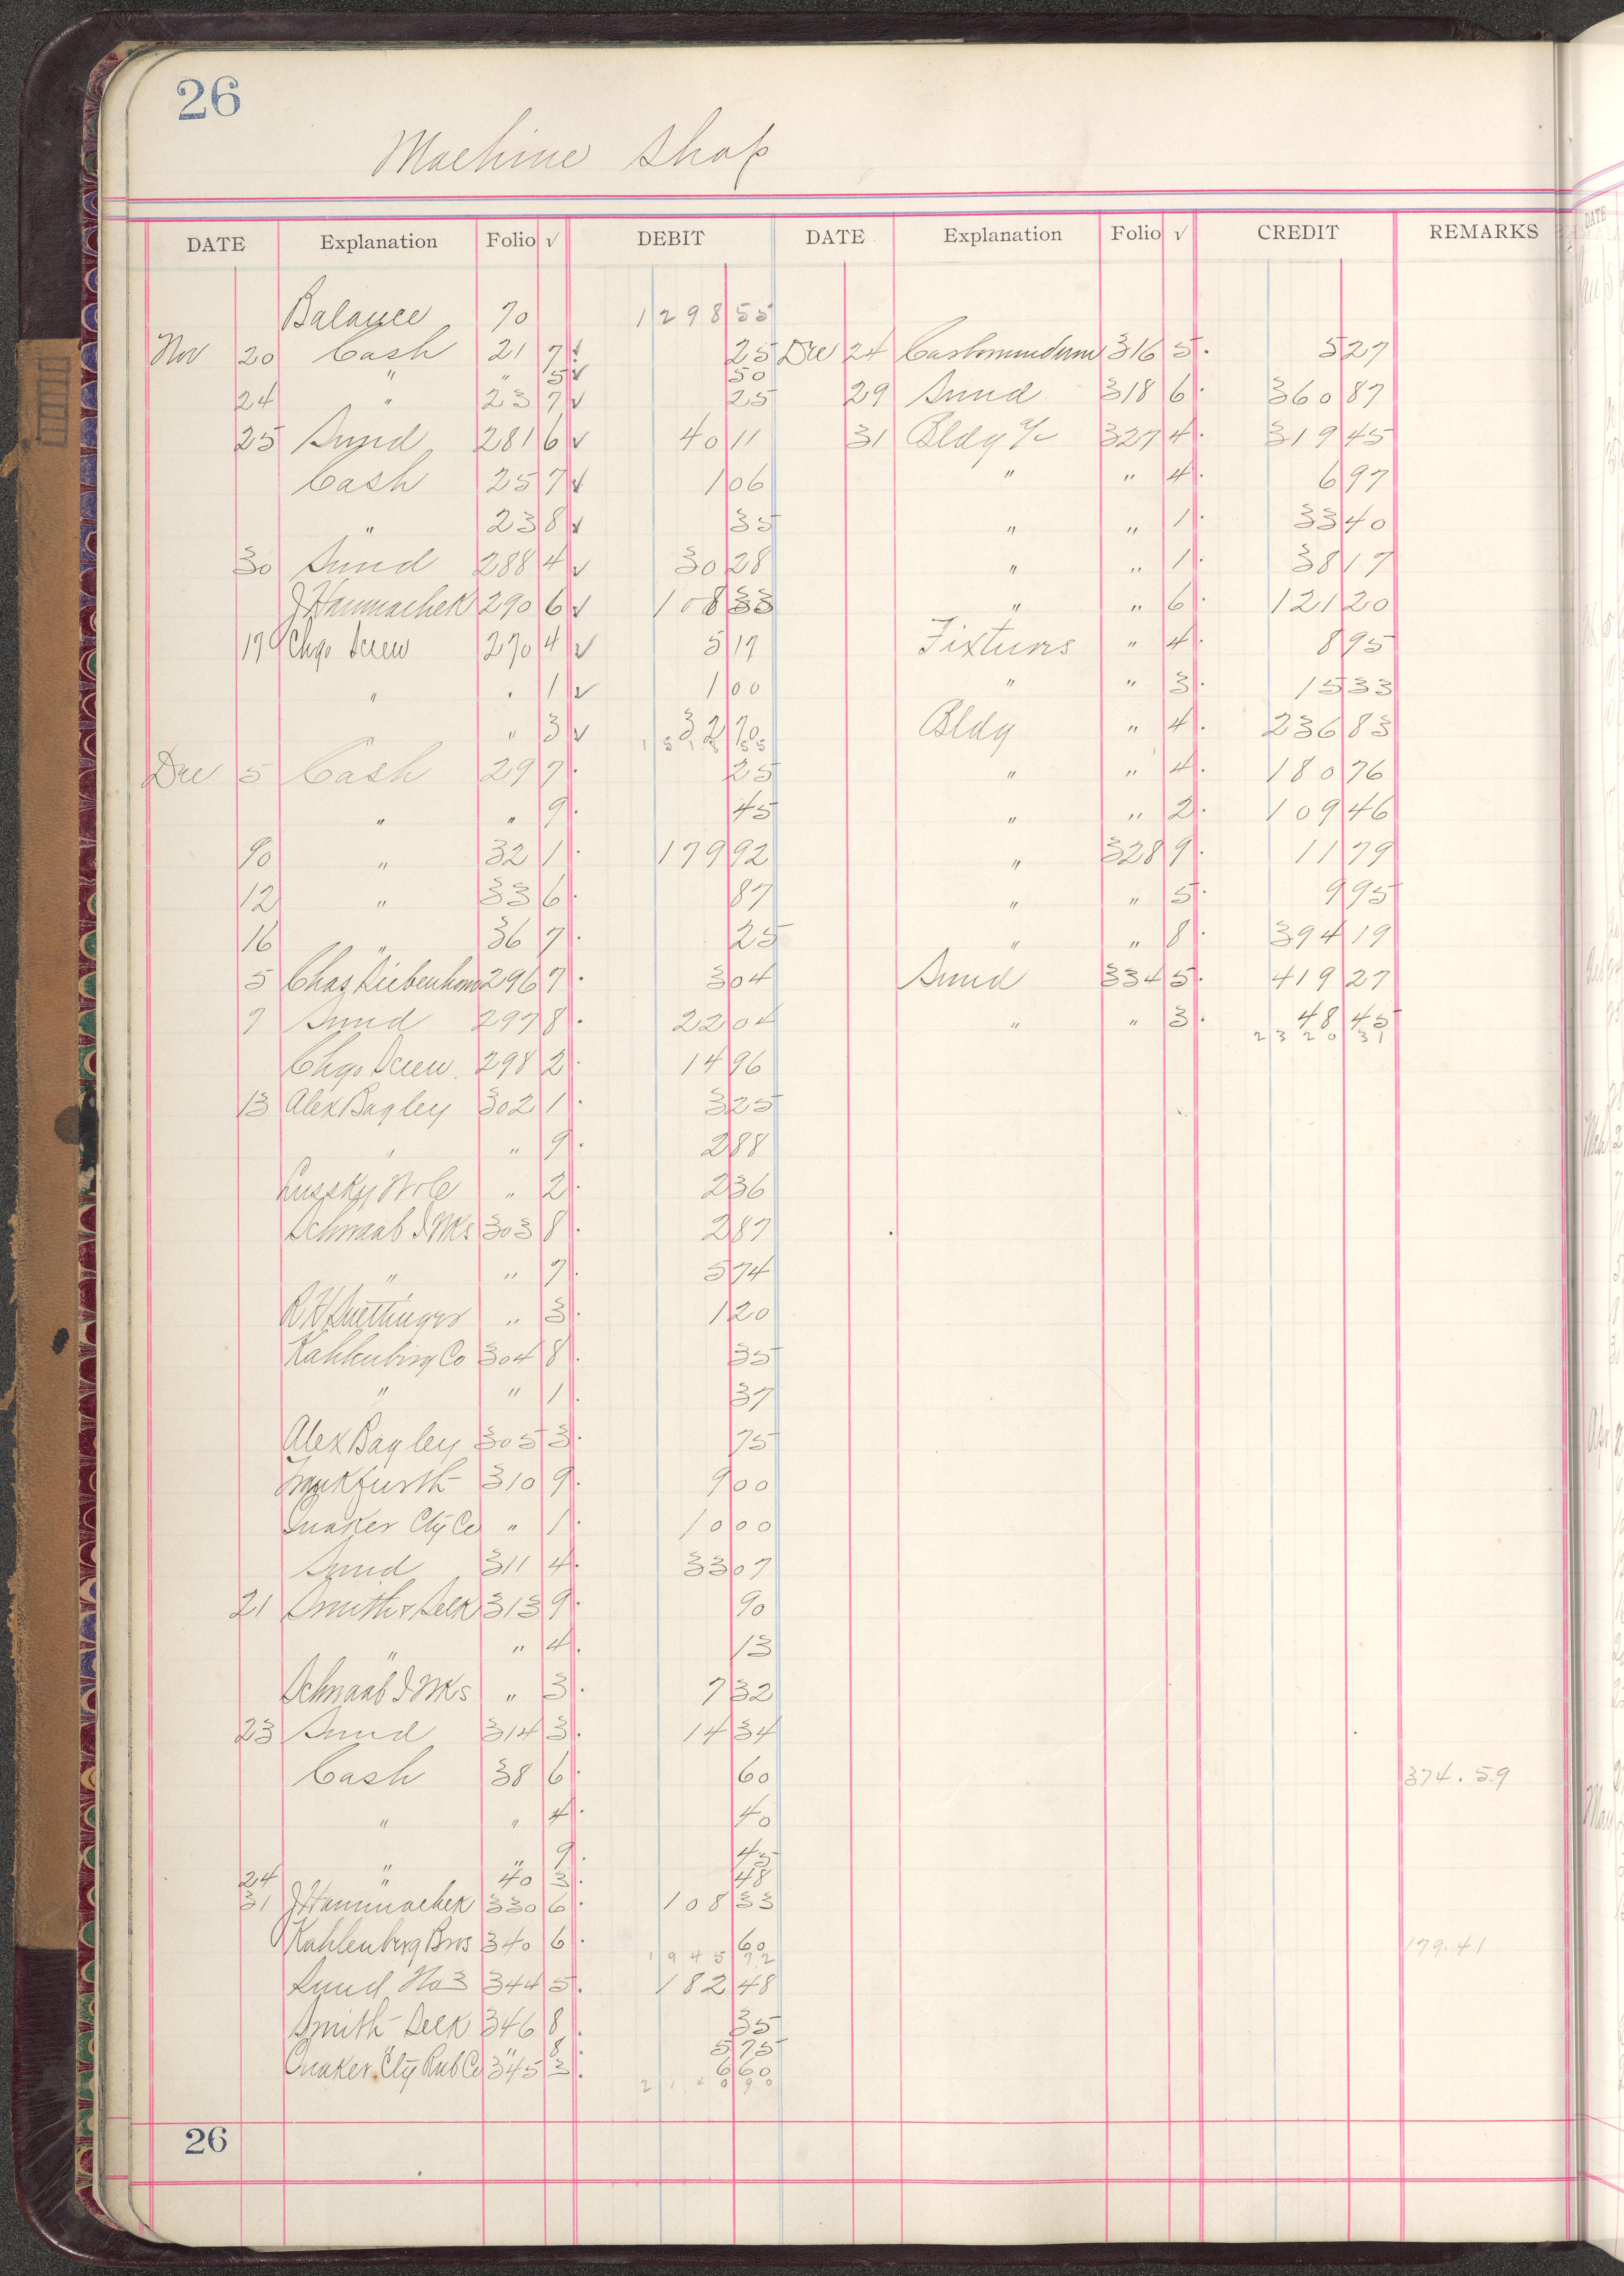 26
Machine Shop
DATE Explanation Folio √ DEBIT DATE Explanation Folio √ CREDIT REMARKS
Balance 70 1298 55
Nov 20 Cash 21 7 √ 25 Dec 24 Carborundum 316 5 5 27
" " 5 √ 50
24 " 23 7 √ 25 29 Sund 318 6 360 87
25 Sund 281 6 √ 40 11 31 Bldg a/c 327 4 319 45
Cash 25 7 √ 1 06 " " 4 6 97
" 23 8 √ 35 " " 1 33 40
30 Sund 288 4 √ 30 28 " " 1 38 17
J Hammachek 290 6 √ 108 33 " " 6 121 20
17 Chgo Screw 270 4 √ 5 17 Fixtures " 4 8 95
" " 1 √ 1 00 " " 3 15 33
" " 3 √ 32 70 Bldg " 4 236 83
Dec 5 Cash 29 7 25 " " 4 180 76
" " 9 45 " " 2 109 46
10 " 32 1 179 92 " 328 9 11 79
12 " 33 6 87 " " 5 9 95
16 " 36 7 25 " " 8 394 19
5 Chas Liebenhom 296 7 3 04 Sund 334 5 419 27
7 Sund 297 8 22 04 " " 3 48 45
2320 31
Chgo Screw 298 2 14 96
13 Alex Bagley 302 1 3 25
" " 9 2 88
" 2 2 36
Schwaab S & Wks 303 8 2 87
" " 7 5 74
" 3 1 20
Kahlenberg Co 304 8 35
" " 1 37
Alex Bagley 305 3 75
Frankfurth 310 9 9 00
Quaker City Co " 1 10 00
Sund 311 4 33 07
21 Smith & Seek 313 9 90
" " 4 13
Schwaab S & Wks " 3 7 32
23 Sund 314 3 14 34
Cash 38 6 60 374.59
" " 4 40
" " 9 45
24 " 40 3 48
31 J Hammachek 330 6 108 33
Kahlenberg Bros 340 6 60 179.41
1945 92
Sund No 3 344 5 182 48
Smith Seek 346 8 35
" 8 5 75
Quaker City Rub Co 345 3 6 60
26